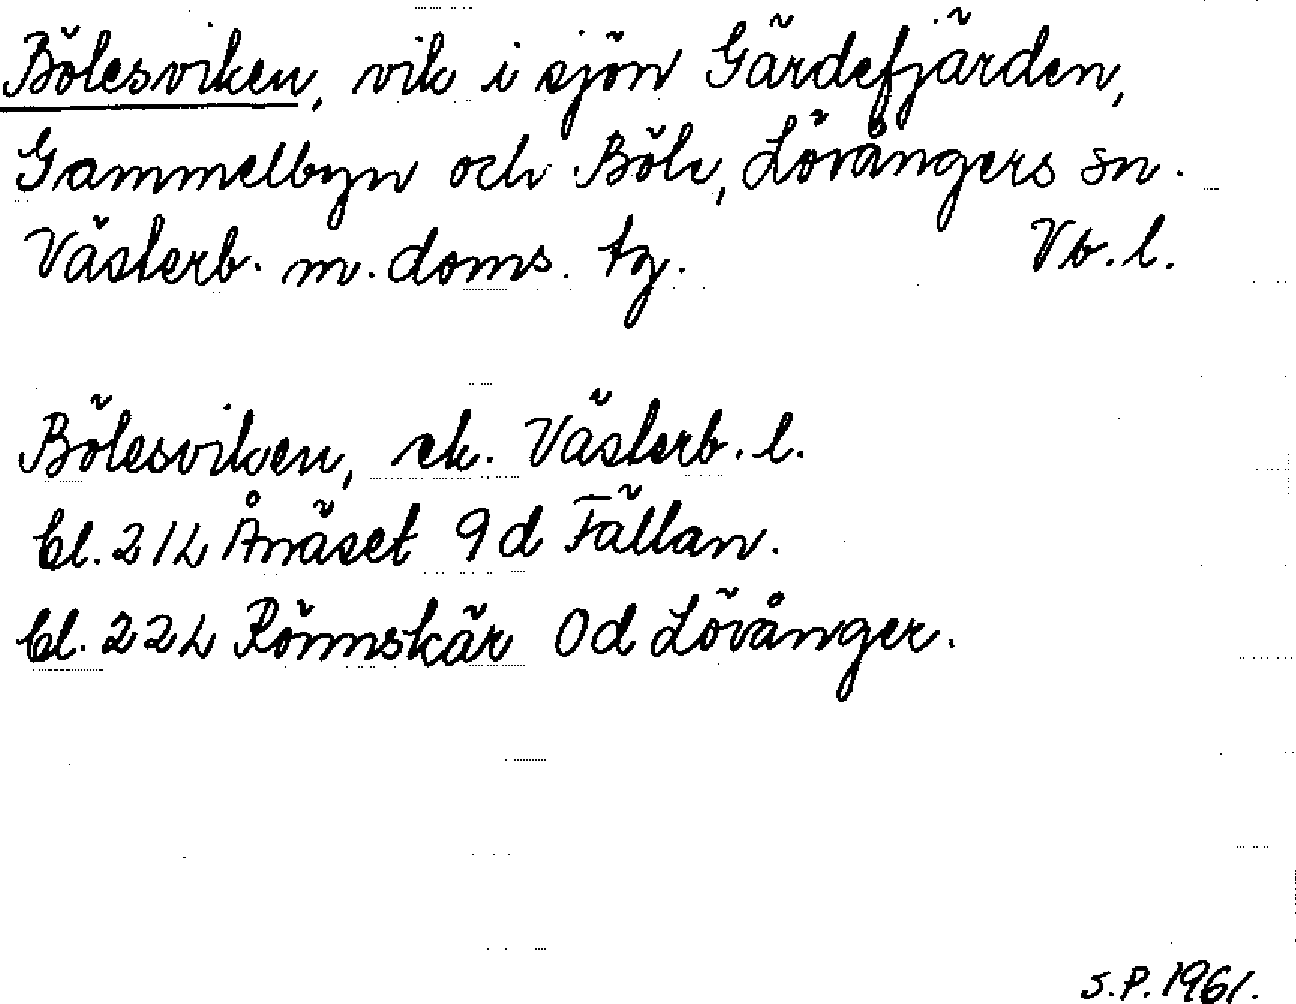 Bölesviken, vik i sjön Gärdefjärden,
Gammelbyn och Böle, Lövångers sn.
Västerb. m. doms. tg. Vb. l.
Bölesviken, ek. Västerb. l.
bl. 21L Ånäset 9d Fällan.
bl. 22L Rönnskär 0d Lövånger.
S.P. 1961.